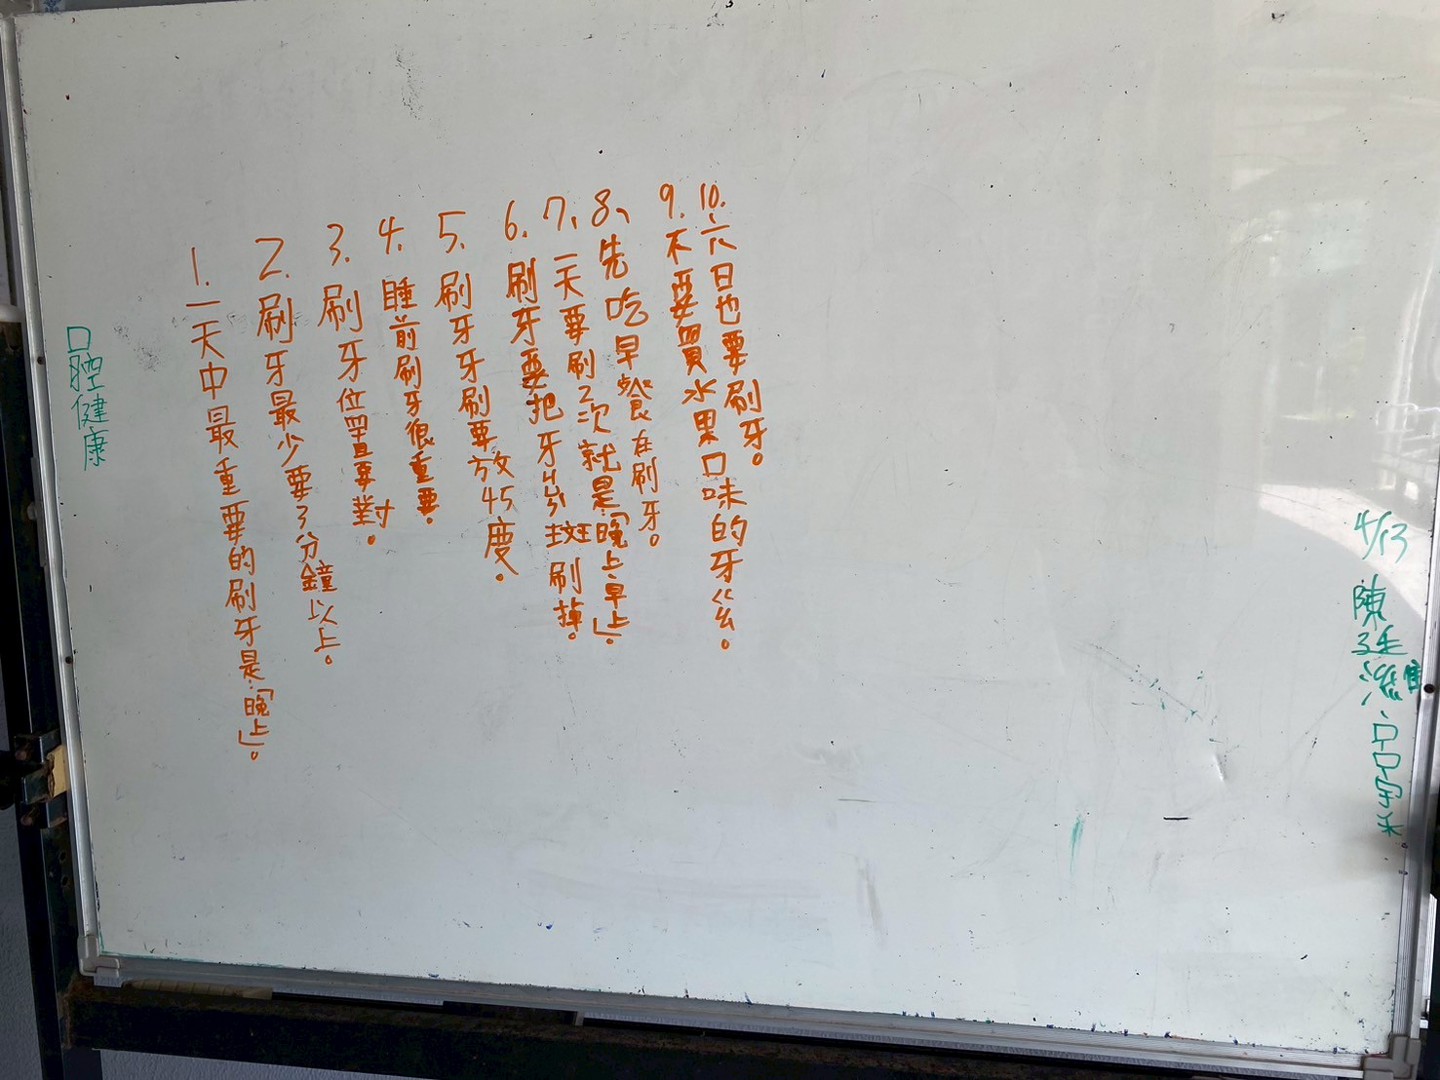 口腔健康
1. 一天中最重要的刷牙是:「晚上」。
2. 刷牙最少要3分鐘以上。
3. 刷牙位置要對。
4. 睡前刷牙很重要。
5. 刷牙牙刷要放45度。
6. 刷牙要把牙ㄐㄩㄣ斑刷掉。
7、一天要刷2次就是:「晚上、早上」。
8、先吃早餐在刷牙。
9. 不要買水果口味的牙ㄍㄠ。
10. 六、日也要刷牙。
4/13
陳